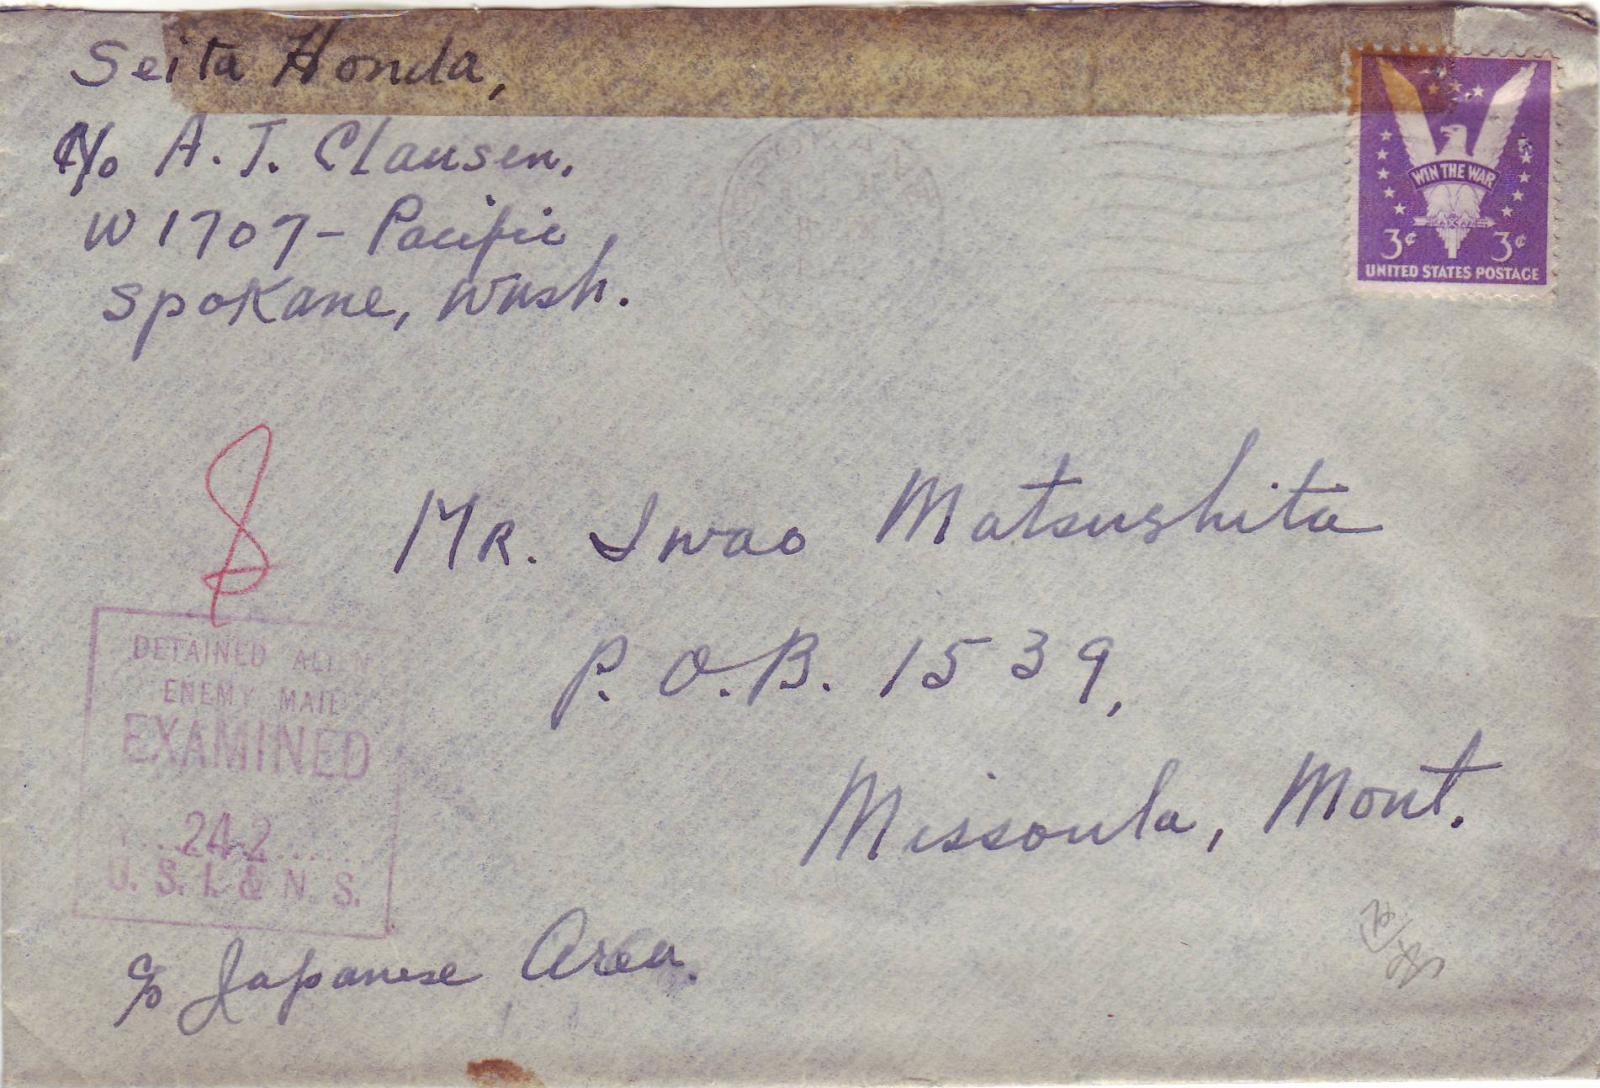 Seita Honda,
c/o A. J. Clausen.
W 1707 - Pacific,
Spokane, Wash.
WIN THE WAR
3¢ 3¢
UNITED STATES POSTAGE
MR. Iwao Matsushita
P. O. B. 1539,
Missoula, Mont.
DETAINED ALIEN
ENEMY MAIL
EXAMINED
...24-2......
U. S. I. & N. S.
c/o Japanese Area.